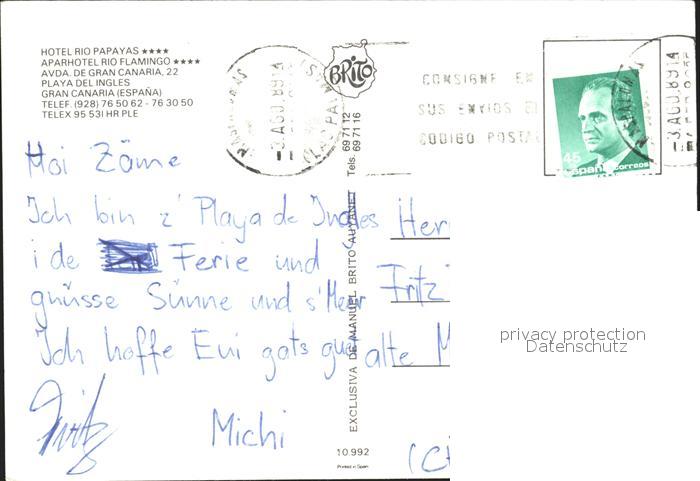 HOTEL RIO PAPAYAS ★★★★
APARHOTEL RIO FLAMINGO ★★★★
AVDA. DE GRAN CANARIA, 22
PLAYA DEL INGLES
GRAN CANARIA (ESPAÑA)
TELEF. (928) 76 50 62 - 76 30 50
TELEX 95 531 HR PLE
BRITO
3 AGO. 89 14
CONSIGNE EN
SUS ENVIOS EL
CODIGO POSTAL
3 AGO. 89 14
45
españa correos
Hoi Zäme
Ich bin z' Playa de Ingles
i de Ferie und
gnüsse Sünne und s'Meer
Ich hoffe Eui gats guet
Michi
Herr
Fritz
alte M
(C
EXCLUSIVA DE MANUEL BRITO AUYANET
Tels. 69 71 12
69 71 16
10.992
Printed in Spain
privacy protection
Datenschutz